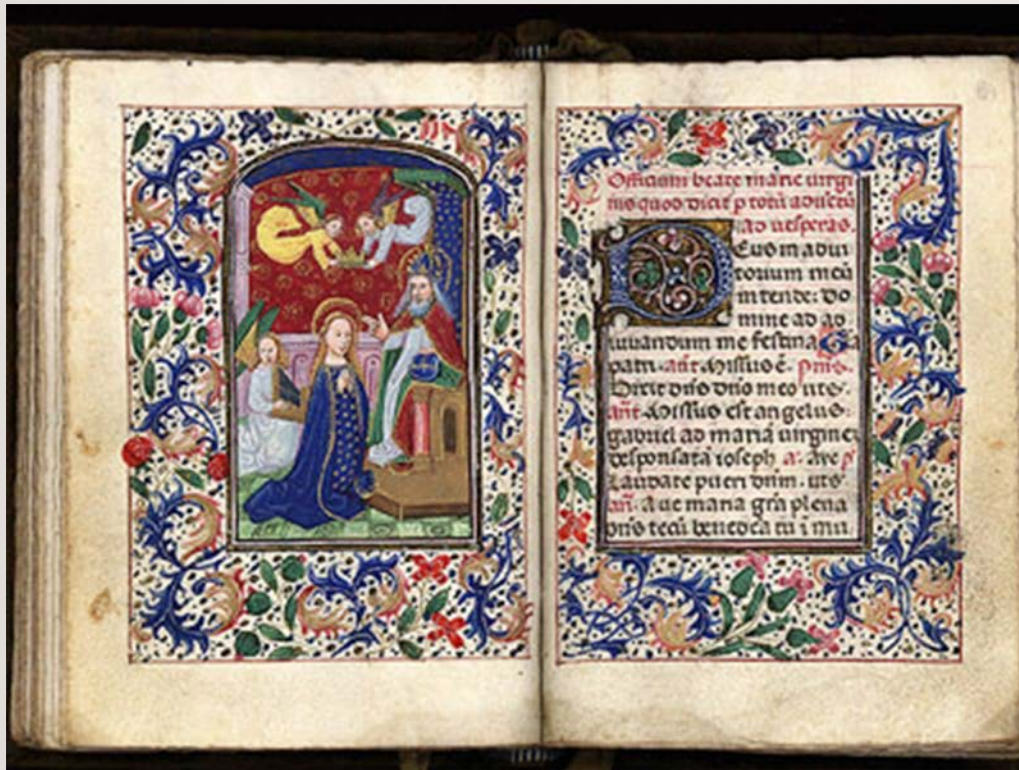 Officium beate marie virgi
nis quod dicit p totū adventū
ad vesperas.
Deus in adiu
torium meū
intende: Do
mine ad ad
iuvandum me festina Glā
patri. añt Missus ē. Pmꝰ.
Dixit dñs dño meo uts.
añt Missus est angelus:
gabriel ad mariā virginē
desponsatā ioseph a: Ave p̄
Laudate pueri dñm. uts.
añ. Ave maria grā plena
dñs tecū benedcā tu ī mu